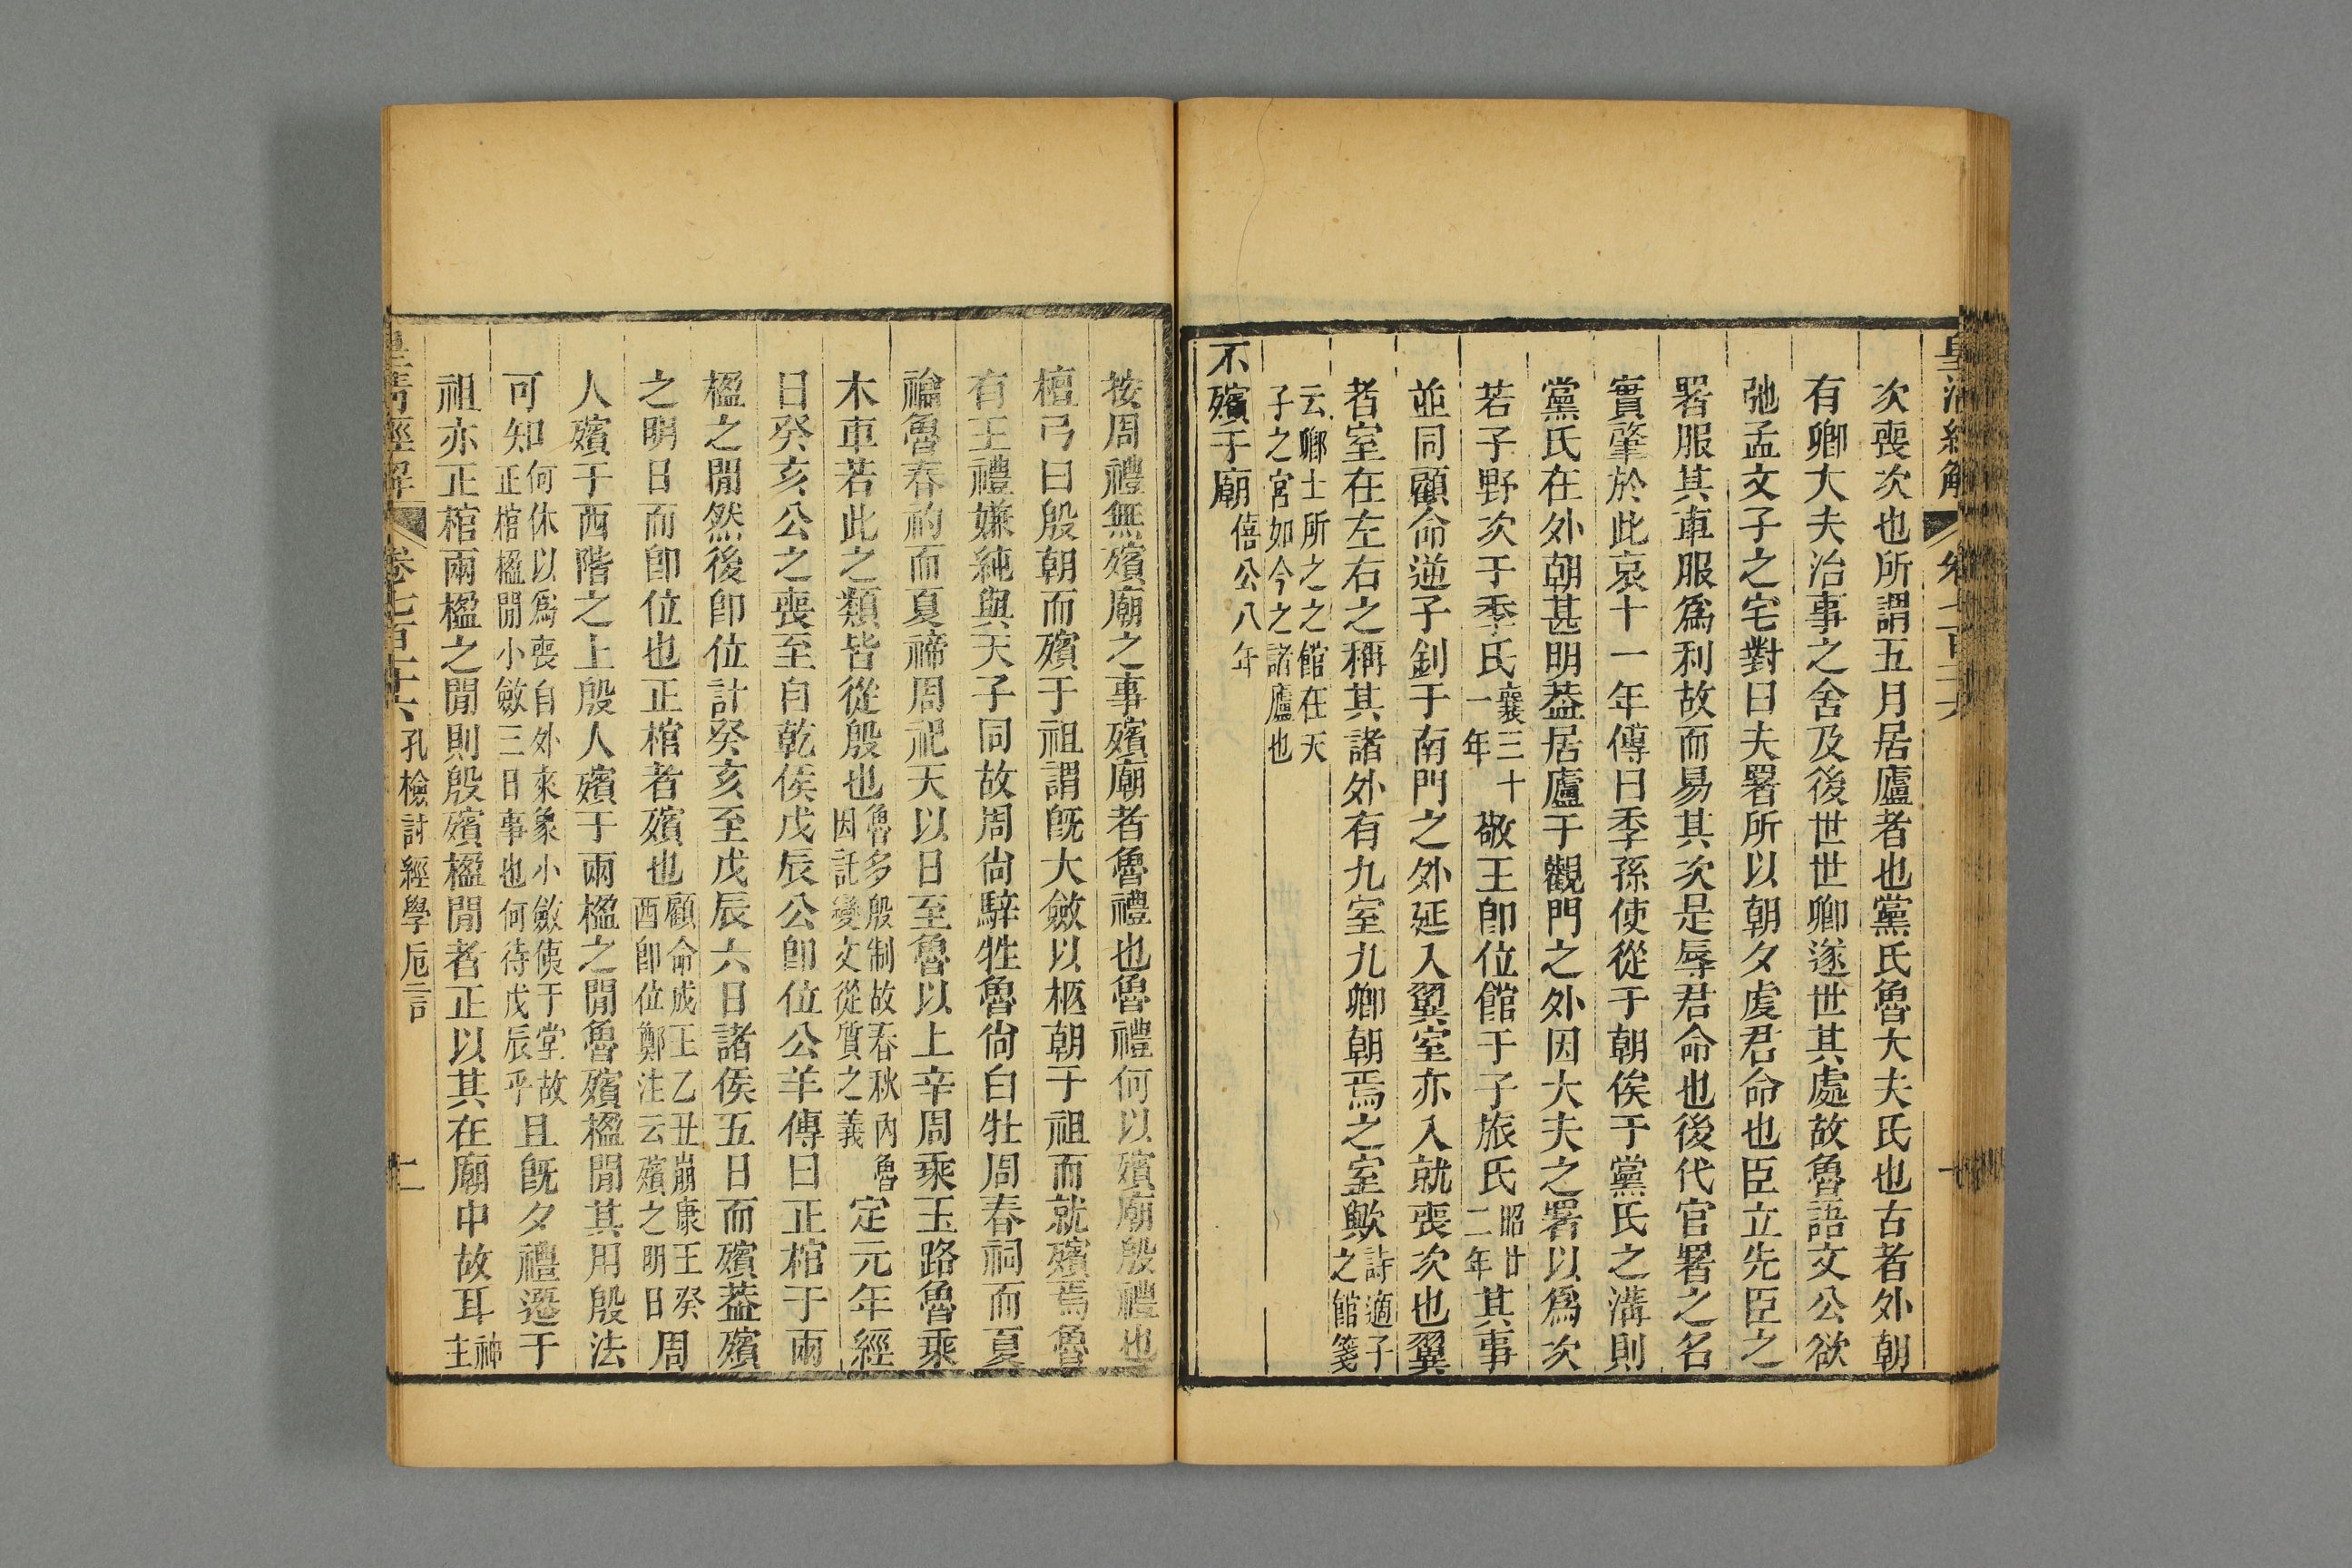 皇清經解
次喪次也所謂五月居廬者也黨氏魯大夫氏也古者外朝
有卿大夫治事之舍及後世世卿遂世其處故魯語文公欲
弛孟文子之宅對曰夫署所以朝夕虔君命也臣立先臣之
署服其車服爲利故而易其次是辱君命也後代官署之名
實肇於此哀十一年傳曰季孫使從于朝俟于黨氏之溝則
黨氏在外朝甚明葢居廬于觀門之外因大夫之署以爲次
若子野次于季氏襄三十一年敬王卽位館于子旅氏昭廿二年其事
並同顧命逆子釗于南門之外延入翼室亦入就喪次也翼
者室在左右之稱其諸外有九室九卿朝焉之室歟詩適子之館箋
云卿士所之之館在天子之宮如今之諸廬也
不殯于廟僖公八年
按周禮無殯廟之事殯廟者魯禮也魯禮何以殯廟殷禮也
檀弓曰殷朝而殯于祖謂旣大斂以柩朝于祖而就殯焉魯
有王禮嫌純與天子同故周尙騂牲魯尙白牡周春祠而夏
禴魯春礿而夏禘周祀天以日至魯以上辛周乘玉路魯乘
木車若此之類皆從殷也魯多殷制故春秋內魯因託變文從質之義定元年經
日癸亥公之喪至自乾侯戊辰公卽位公羊傳曰正棺于兩
楹之閒然後卽位計癸亥至戊辰六日諸侯五日而殯葢殯
之明日而卽位也正棺者殯也顧命成王乙丑崩康王癸酉卽位鄭注云殯之明日周
人殯于西階之上殷人殯于兩楹之閒魯殯楹閒其用殷法
可知何休以爲喪自外來象小斂俠于堂故正棺楹閒小斂三日事也何待戊辰乎且旣夕禮遷于
祖亦正棺兩楹之閒則殷殯楹閒者正以其在廟中故耳神主
皇清經解 卷七百十六 孔檢討經學卮言 二